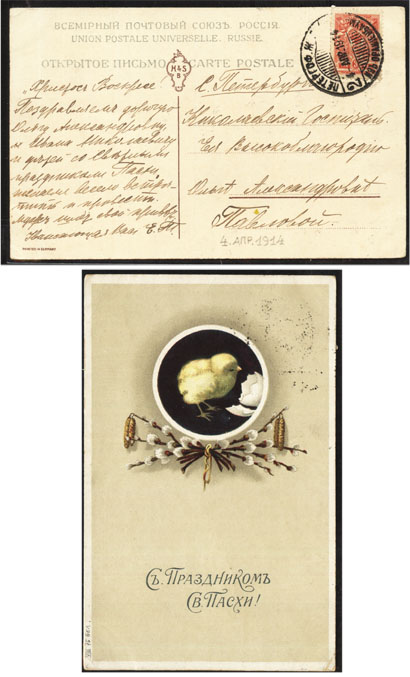 ВСЕМІРНЫЙ ПОЧТОВЫЙ СОЮЗЪ. РОССІЯ.
UNION POSTALE UNIVERSELLE. RUSSIE.
ОТКРЫТОЕ ПИСЬМО
CARTE POSTALE
H&S
B
ПЕТЕРГОФ. Ж.
2
Христосъ Воскресе
Поздравляемъ дорогую
Ольгу Александровну
и Ивана Николаевича
и дѣтей со Свѣтлымъ
праздникомъ Пасхи
желаемъ весело встрѣ-
тить и провести.
С. Петербургъ
Николаевскій Госпиталь.
Ея Высокоблагородію
Ольгѣ Александровнѣ
Павловой.
4. АПР. 1914
PRINTED IN GERMANY
Съ Праздникомъ
Св. Пасхи!